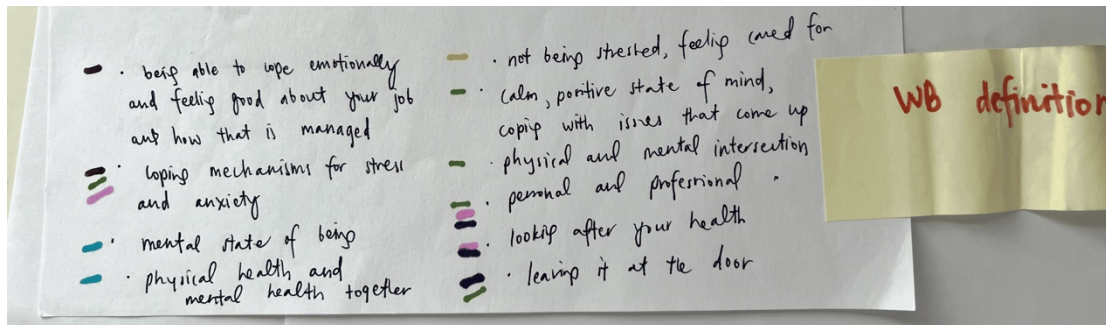 · being able to cope emotionally
and feeling good about your job
and how that is managed
· coping mechanisms for stress
and anxiety
· mental state of being
· physical health and
mental health together
· not being stressed, feeling cared for
· calm, positive state of mind,
coping with issues that come up
· physical and mental intersection
· personal and professional
· looking after your health
· leaving it at the door
WB definition